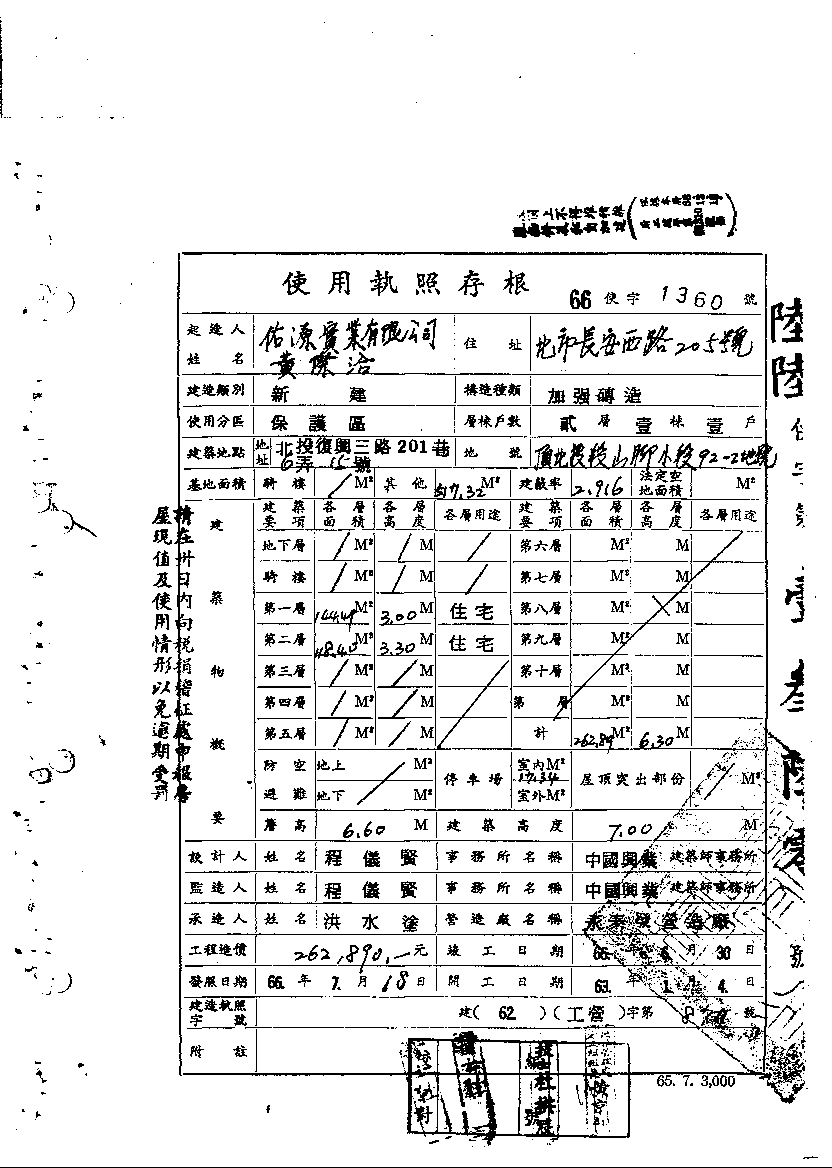 使用執照存根
66 使字 1360 號
起造人姓名 佑源實業有限公司 黃傑治 住址 北市長安西路205號
建造類別 新建 構造種類 加强磚造
使用分區 保護區 層棟戶數 貳層壹棟壹戶
建築地點 地址 北投復興三路201巷6弄15號 地號 頂北投段山腳小段92-2地號
基地面積 騎樓 / M² 其他 517.32 M² 建蔽率 2.916 法定空地面積 M²
建築物概要 建築要項 各層面積 各層高度 各層用途 建築要項 各層面積 各層高度 各層用途
地下層 / M² / M / 第六層 M² M
騎樓 / M² / M / 第七層 M² M
第一層 144.49 M² 3.00 M 住宅 第八層 M² M
第二層 M² 3.30 M 住宅 第九層 M² M
第三層 / M² / M 第十層 M² M
第四層 / M² / M 第 層 M² M
第五層 / M² / M 計 262.89 M² 6.30 M
防空避難 地上 / M² 地下 M² 停車場 室內M² 17.34 室外M² 屋頂突出部份 / M²
簷高 6.60 M 建築高度 7.00 M
設計人 姓名 程儀賢 事務所名稱 中國興業 建築師事務所
監造人 姓名 程儀賢 事務所名稱 中國興業 建築師事務所
承造人 姓名 洪水塗 營造廠名稱
工程造價 262,890.一元 竣工日期 66.年 6.月 30日
發照日期 66.年 7.月 18日 開工日期 63.年 1.月 4.日
建造執照字號 建(62)(工營)字第 號
附註
65. 7. 3,000
請在卅日內向稅捐稽征處申報房
屋現值及使用情形以免逾期受罰
陸陸使字第壹叁陸零號